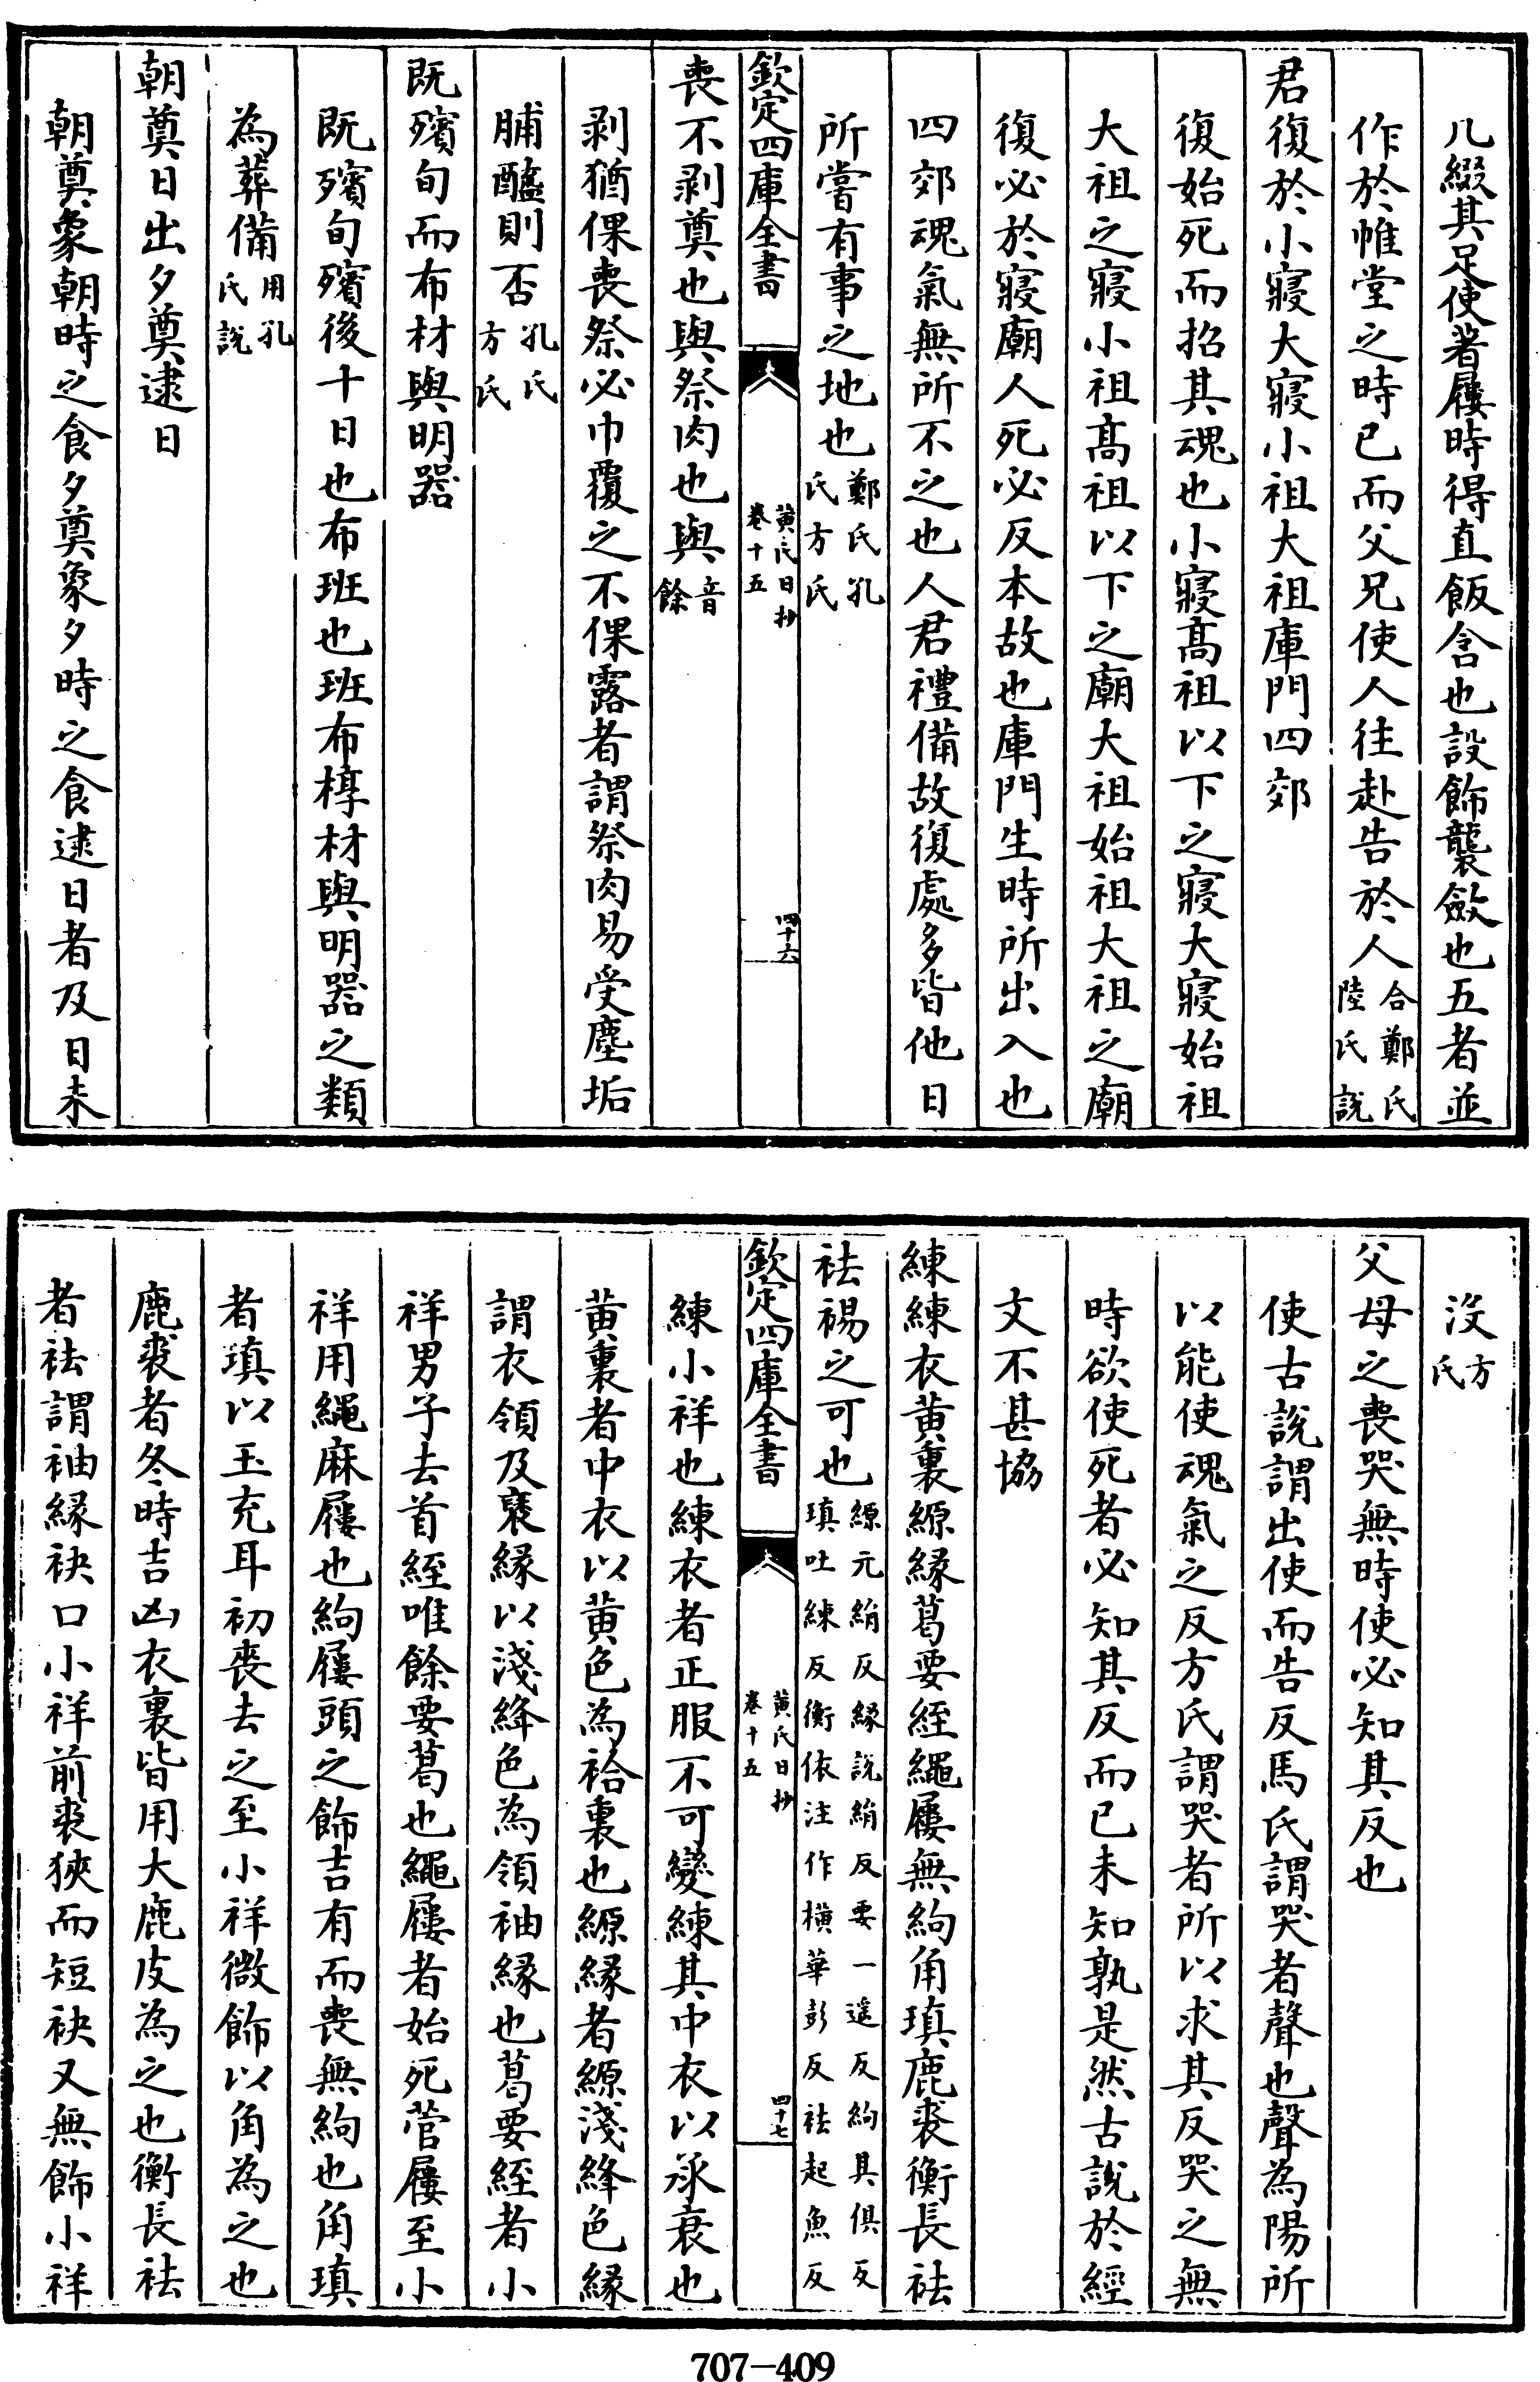 几綴其足使著屨時得直飯含也設飾襲斂也五者並
作於帷堂之時已而父兄使人往赴告於人合鄭氏陸氏說
君復於小寢大寢小祖大祖庫門四郊
復始死而招其魂也小寢髙祖以下之寢大寢始祖
大祖之寢小祖髙祖以下之廟大祖始祖大祖之廟
復必於寢廟人死必反本故也庫門生時所出入也
四郊魂氣無所不之也人君禮備故復處多皆他日
所嘗有事之地也鄭氏孔氏方氏
欽定四庫全書
黄氏日抄
卷十五
四十六
喪不剥奠也與祭肉也與音餘
剥猶倮喪祭必巾覆之不倮露者謂祭肉易受塵垢
脯醢則否孔氏方氏
既殯旬而布材與明器
既殯旬殯後十日也布班也班布椁材與明器之類
為葬備用孔氏說
朝奠日出夕奠逮日
朝奠象朝時之食夕奠象夕時之食逮日者及日未
没方氏
父母之喪哭無時使必知其反也
使古說謂出使而告反馬氏謂哭者聲也聲為陽所
以能使魂氣之反方氏謂哭者所以求其反哭之無
時欲使死者必知其反而已未知孰是然古說於經
文不甚協
練練衣黄裏縓緣葛要絰繩屨無絇角瑱鹿裘衡長袪
袪裼之可也縓元絹反緣說絹反要一遥反絇其俱反瑱吐練反衡依注作横華彭反袪起魚反
欽定四庫全書
黄氏日抄
卷十五
四十七
練小祥也練衣者正服不可變練其中衣以承衰也
黄裏者中衣以黄色為袷裏也縓緣者縓淺絳色緣
謂衣領及褎緣以淺絳色為領袖緣也葛要絰者小
祥男子去首絰唯餘要葛也繩屨者始死菅屨至小
祥用繩麻屨也絇屨頭之飾吉有而喪無絇也角瑱
者瑱以玉充耳初喪去之至小祥微飾以角為之也
鹿裘者冬時吉凶衣裏皆用大鹿皮為之也衡長袪
者袪謂袖緣袂口小祥前裘狹而短袂又無飾小祥
707-409